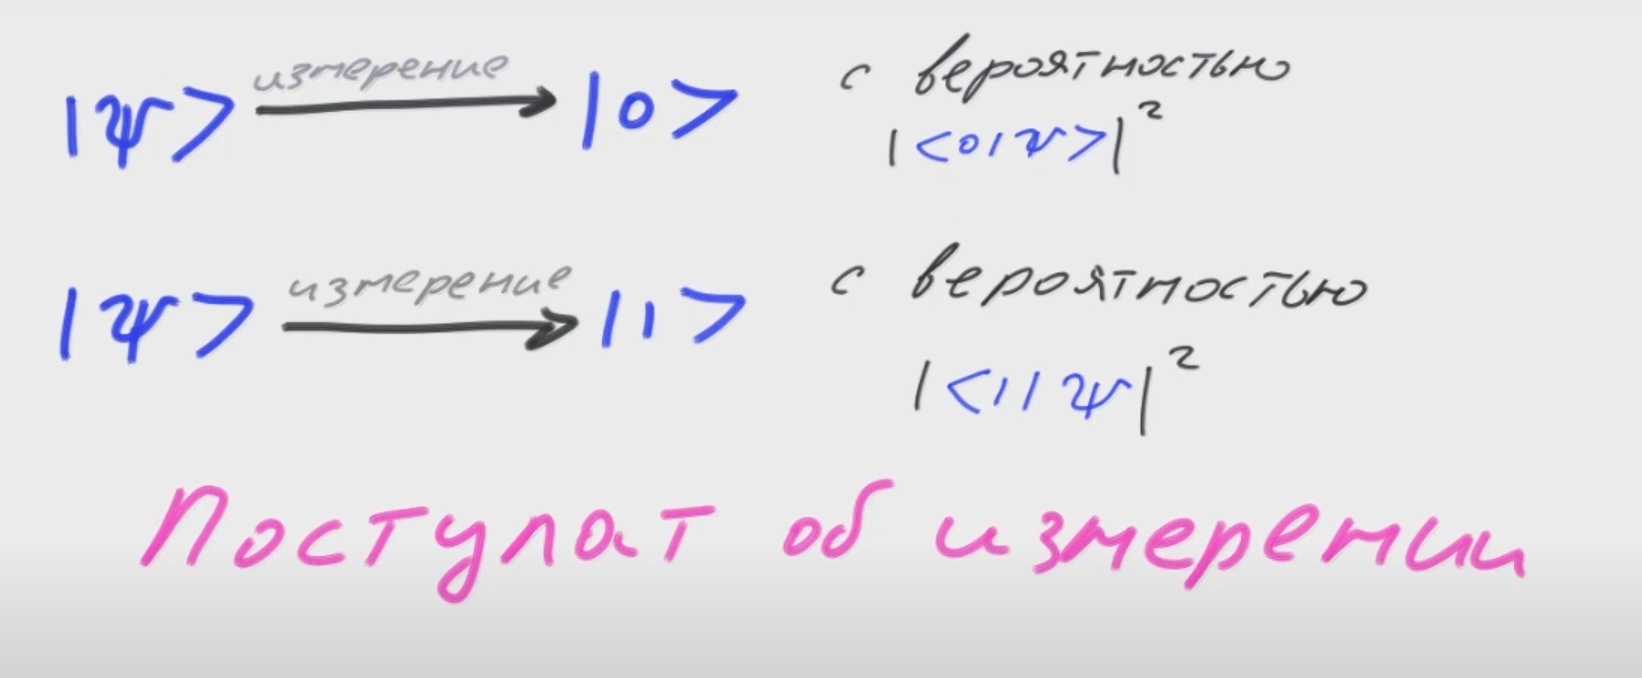 |ψ> измерение |0> с вероятностью
|<0|ψ>|²
|ψ> измерение |1> с вероятностью
|<1|ψ|²
Постулат об измерении